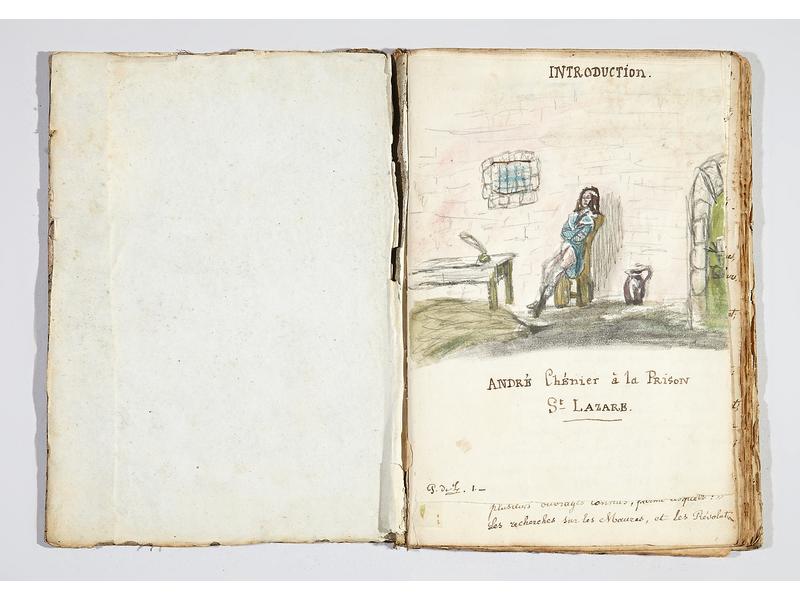 INTRODUCTION.
ANDRÉ Chénier à la PRISON
St LAZARE.
P. de L. 1.
plusieurs ouvrages connus, parmi lesquels :
Les recherches sur les Maures, et les Révolut